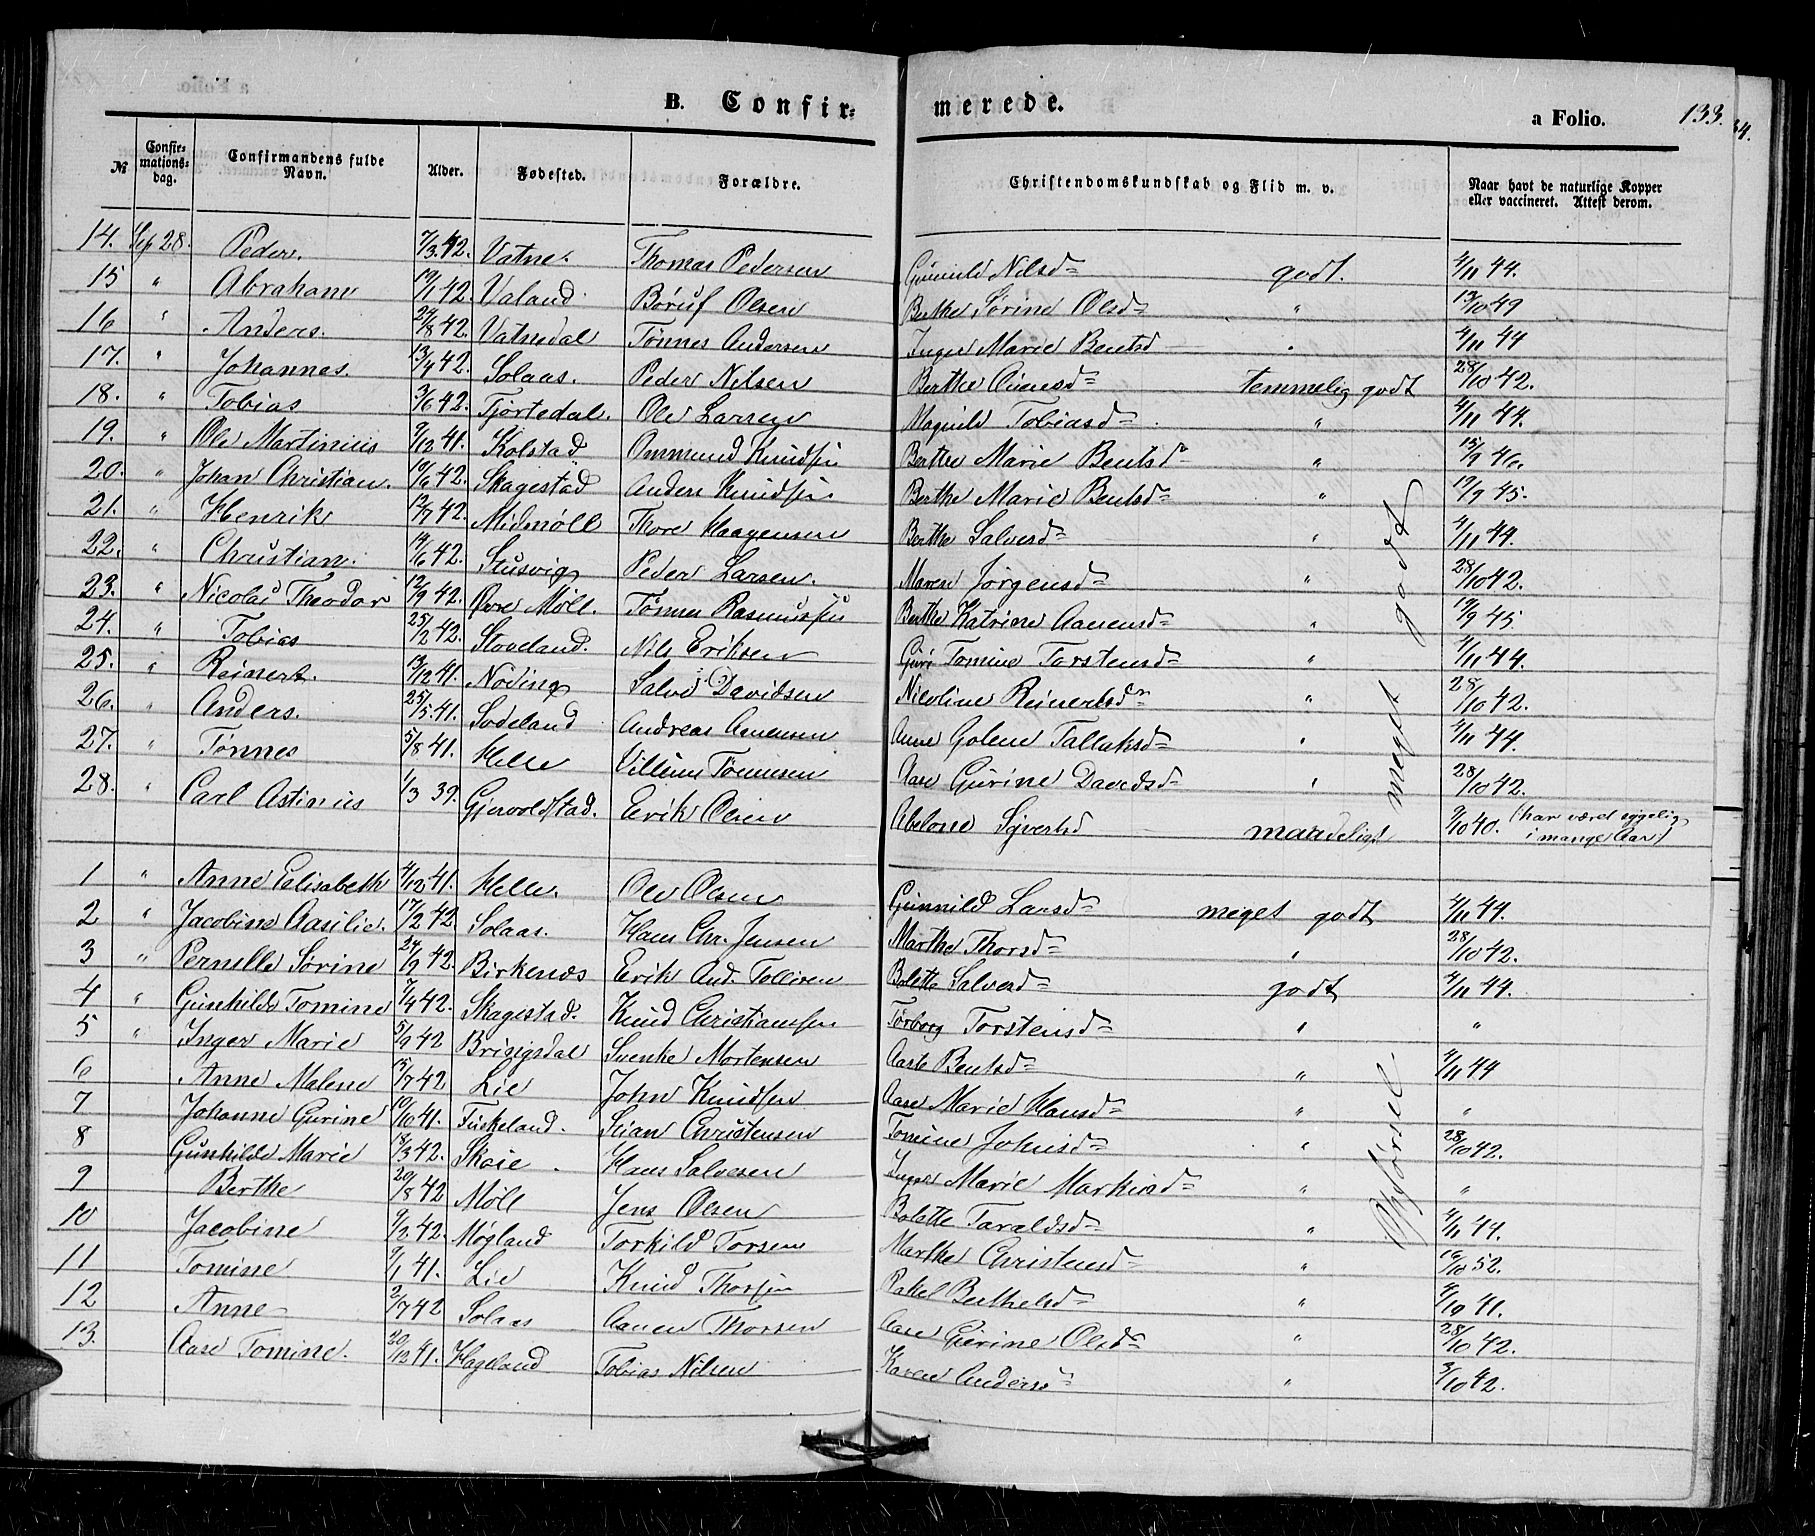 B. Confir= merede. a Folio. 133.
№ Confir= mations= dag. Confirmandens fulde Navn. Alder. Fødested. Forældre. Christendomskundskab og Flid m. v. Naar havt de naturlige Kopper eller vaccineret. Attest derom.
14. Sep 28. Peder. 7/3 42. Vatne. Thomas Pedersen Gunild Nilsd= godt. 4/11 44.
15 " Abraham 19/1 42. Valand Børuf Olsen Berthe Sørine Olsd= " 13/10 49
16 " Anders. 24/8 42. Vatnedal Tønnes Andersen Inger Marie Bentsd " 4/11 44
17. " Johannes. 13/4 42. Solaas. Peder Nilsen Berthe temmelig godt 28/10 42.
18. " Tobias 3/6 42. Tjortedal. Ole Larsen Magnild Tobiasd= " 4/11 44.
19. " Ole Martinius 9/12 41. Kolstad Ommund Knudsen Berthe Marie Bentsd= " 15/9 46.
20. " Johan Christian. 10/6 42. Skagestad Anders Knudsen Berthe Marie Bentsd= " 19/9 45.
21. " Henrik 12/7 42. Midmøll Thore Haagensen Berthe Salvesd= " 4/11 44.
22. " Christian. 14/6 42. Stusvig Peder Larsen. Maren Jørgensd= " 28/10 42.
23. " Nicolai Theodor 12/9 42. Øvre Møll. Tønnes Rasmussen Berthe Katrine Aanensd= " 19/9 45
24. " Tobias 25/2 42. Stoveland. Nils Eriksen Guri Tomine Torstensd= " 4/11 44.
25. " Reinert. 13/12 41. Noding Salve Davidsen Nicoline Reinertsd= " 28/10 42.
26. " Anders. 25/5 41. Sodeland Andreas Aanensen Anne Golene Tallaksd= " 4/11 44.
27. " Tønnes 5/8 41. Helle Villum Tønnesen Aase Gurine Davidsd= " 28/10 42.
28. " Carl Astinius 1/3 39. Gjervoldstad. Erik Olsen Abelone Syvertsd maadeligt 9/10 40. (har været sygelig
i mange Aar)
1 " Anne Elisabeth 4/12 41. Helle. Ole Olsen Gunnild Larsd= meget godt 4/11 44.
2 " Jacobine Aasilie. 17/2 42. Solaas. Hans Chr. Jensen Marthe Thorsd= " 28/10 42.
3 " Pernille Sørine 24/9 42. Birkenæs Erik And. Tollivsen Bolette Salvesd= godt 4/11 44.
4 " Gunhilde Tomine 7/4 42. Skagestad. Knud Christiansen Torborg Torstensd= " "
5 " Inger Marie 5/9 42 Brisigsdal Svenke Mortensen Aaste Bentsd= " 4/11 44
6 Anne Malene 15/7 42 Lie John Knudsen Aase Marie Hansd= " "
7 Johanne Gurine 10/10 41. Fuskeland. Stian Christensen Tomine Johnsd= " 28/10 42.
8 Gunhilde Marie 18/3 42. Skaie. Hans Salvesen Inger Marie Markusd= " "
9 Berthe 20/8 42 Møll Jens Olsen Bolette Taraldsd= " 4/11 44.
10 Jacobine 9/2 42. Møgland Torkild Torsen Marthe Christensd= " 16/10 52.
11 Tomine 9/1 41. Lie Knud Thorsen Rakel Berthelsd= " 4/10 41.
12 Anne 2/7 42 Solaas Aanen Thorsen Aase Gurine Olsd= " 28/10 42.
13. Aase Tomine. 20/12 41. Hageland Tobias Nilsen Karen Andersd= " 3/10 42.
meget godt
Opførsel.